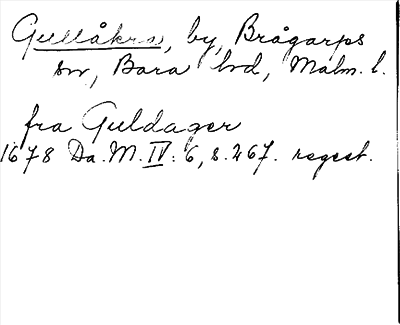 Gullåkra, by, Brågarps
sn, Bara hd, Malm. l.
fra Guldager
1678 Da. M. IV: 6, s. 267. regest.